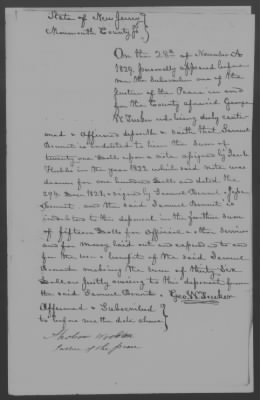 State of New Jersey }
Monmouth County Ss }
On the 28th of November A
1829, personally appeared before
me the Subscriber one of the
Justices of the Peace in and
for the County aforesaid George
W Tucker who being duly
& Affirmed deposeth & saith that Samuel
is indebted to him the Sum of
twenty one Dolls upon a note assigned by
in the year 1822 which said note was
drawn for one hundred Dolls and dated the
29th June 1822, signed by Samuel
and the said Samuel is
indebted to the deponent in the further sum
of fifteen Dolls for & other Services
and for money laid out and expended to and
for the use & benefit of the said Samuel
making the sum of thirty Six
Dollars justly owing to the deponent from
the said Samuel Geo. W. Tucker
Affirmed & Subscribed }
to before me the date above }
Justice of the peace